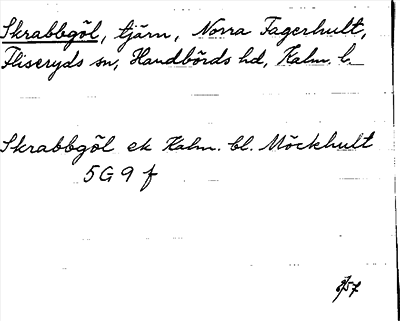 Skrabbgöl, tjärn, Norra Fagerhult,
Fliseryds sn, Handbörds hd, Kalm. l.
Skrabbgöl ek Kalm. bl. Möckhult
5G9f